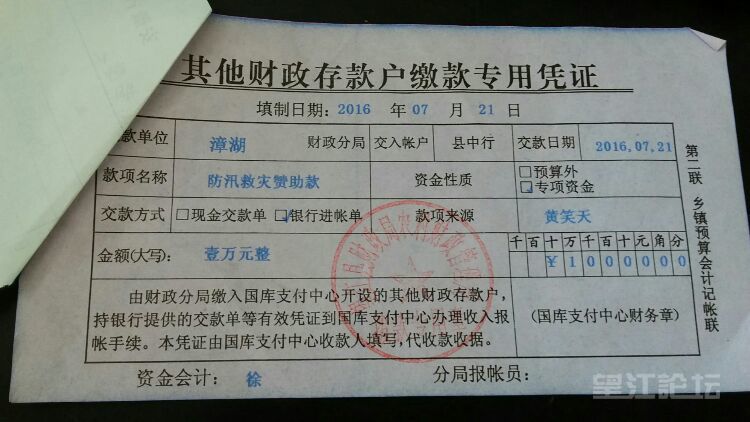 其他财政存款户缴款专用凭证
填制日期：2016 年 07 月 21 日
款单位 漳湖 财政分局 交入帐户 县中行 交款日期 2016,07,21
款项名称 防汛救灾赞助款 资金性质 □预算外
☑专项资金
交款方式 □现金交款单 ☑银行进帐单 款项来源 黄笑天
金额(大写)： 壹万元整 千百十万千百十元角分
¥1000000
由财政分局缴入国库支付中心开设的其他财政存款户，
持银行提供的交款单等有效凭证到国库支付中心办理收入报
帐手续。本凭证由国库支付中心收款人填写，代收款收据。
(国库支付中心财务章)
资金会计： 徐 分局报帐员：
第二联 乡镇预算会计记帐联
望江論坛